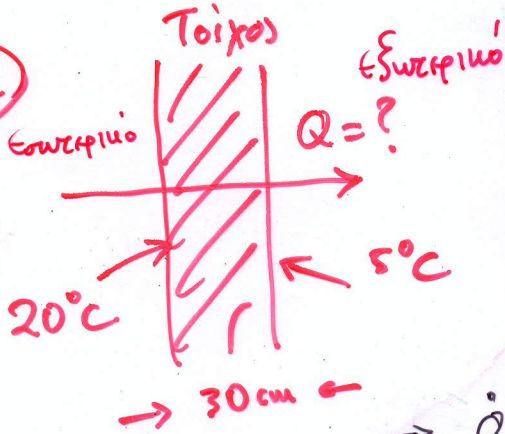 Τοίχος
εξωτερικό
εσωτερικό
Q = ?
20°C
5°C
30 cm